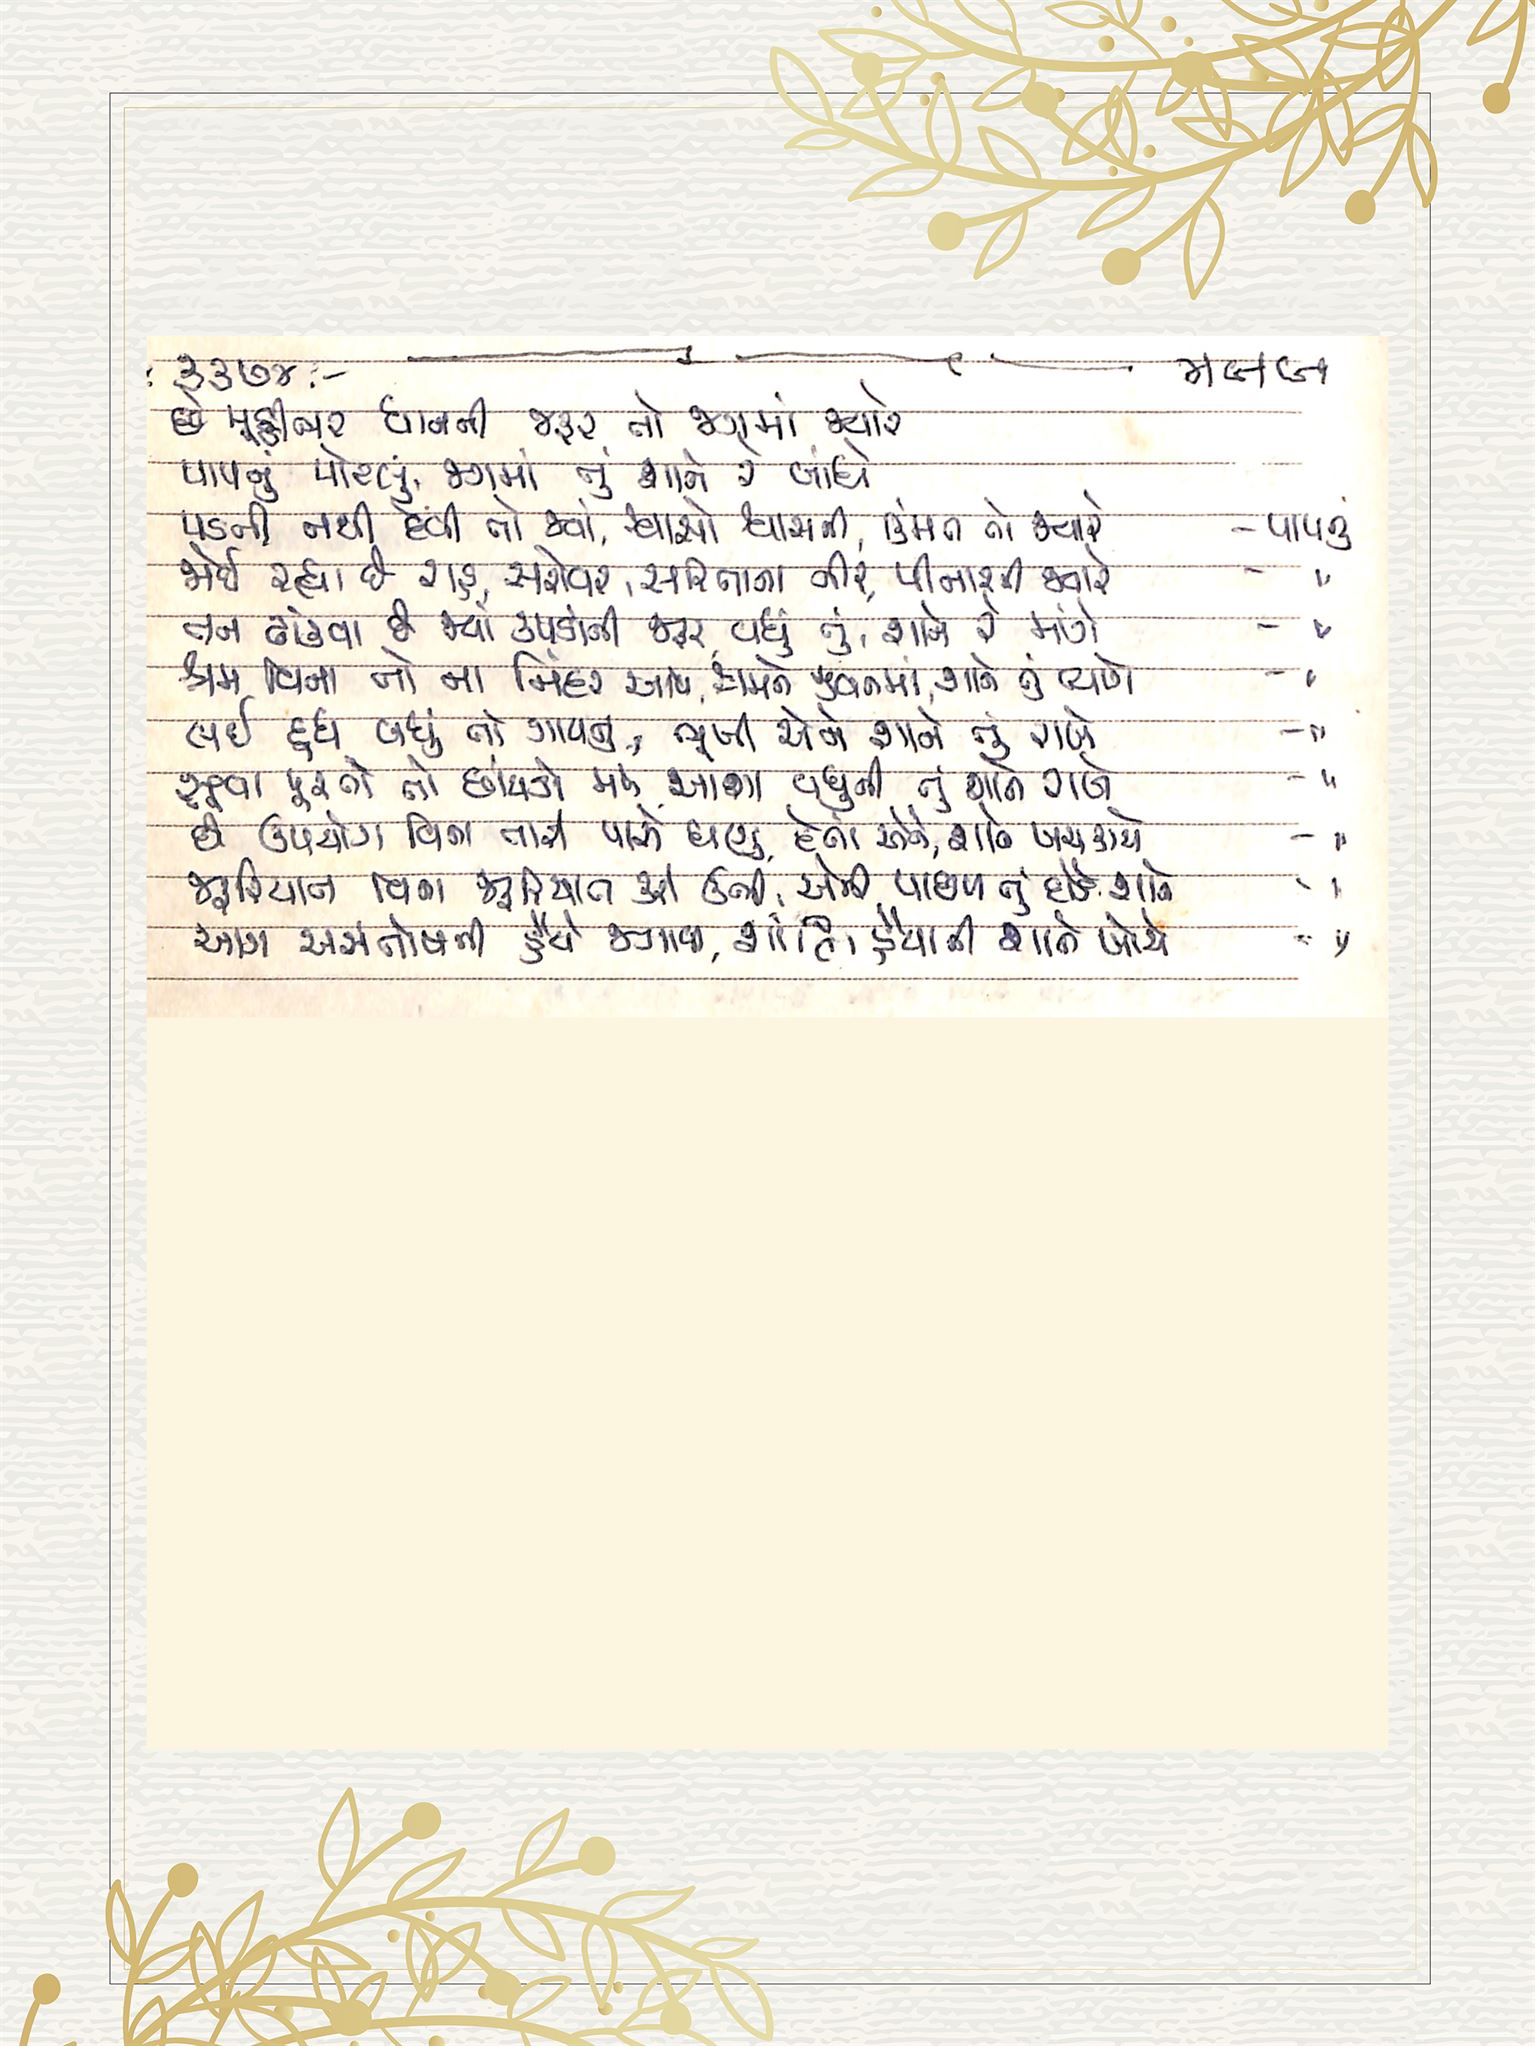 ૩૩૭૪:- ભજન
છે મૂઠ્ઠીભર ધાનની જરૂર તો જગમાં જ્યારે
પાપનું પોટલું, જગમાં તું શાને રે બાંધે
પડતી નથી દેવી તો જ્યાં, શ્વાસો શ્વાસની, કિંમત તો જ્યારે - પાપનું
જોઈ રહ્યા છે રાહ, સરોવર, સરિતાના નીર, પીનારની જ્યારે - "
તન ઢાંકવા છે જ્યાં કપડાંની જરૂર, વધું તું, શાને રે માંગે - "
શ્રમ વિના તો ના નિંદર આવે, શ્રમને જીવનમાં, શાને તું ત્યાગે - "
લઈ દૂધ બધું તો ગાયનું, ભૂખી એને શાને તું રાખે - "
સૂવા પૂરતો તો છાંયડો મળે, આશા વધુની તું શાને રાખે - "
છે ઉપયોગ વિના તારી પાસે ઘણું, દેતા એને, શાને ખચકાયે - "
જરૂરિયાત વિના જરૂરિયાત કરી ઊભી, એની પાછળ તું દોડે શાને - "
આગ અસંતોષની હૈયે જગાવી, શાંતિ હૈયાની શાને ખોયે - "